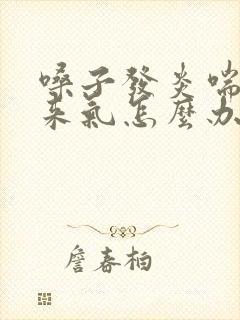 嗓子發炎喘
來氣怎麼办
詹春柏